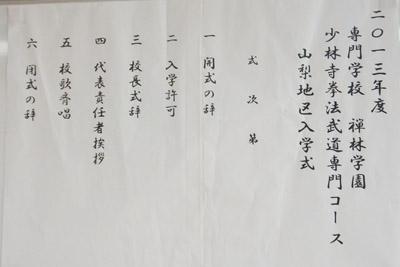 二〇一三年度
専門学校 禅林学園
少林寺拳法武道専門コース
山梨地区入学式
式次第
一 開式の辞
二 入学許可
三 校長式辞
四 代表責任者挨拶
五 校歌斉唱
六 閉式の辞